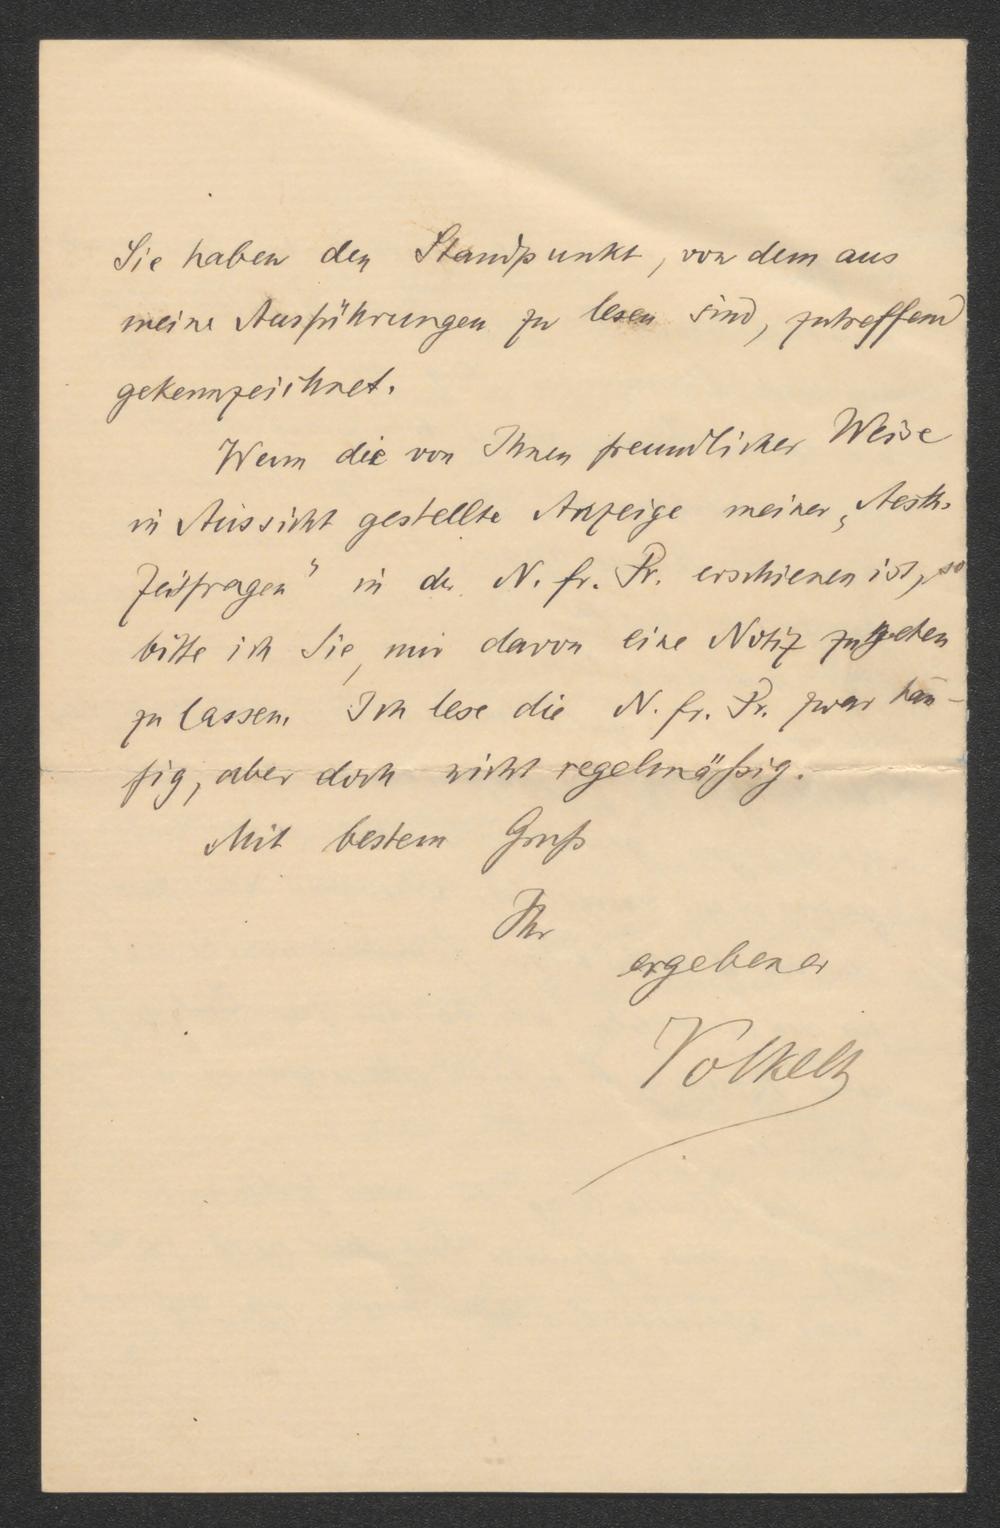 Sie haben den Standpunkt, von dem aus
meine Ausführungen zu lesen sind, zutreffend
gekennzeichnet.
Wenn die von Ihnen freundlicher Weise
in Aussicht gestellte Anzeige meiner „Aesth.
Zeitfragen" in der N. fr. Pr. erschienen ist, so
bitte ich Sie, mir davon eine Notiz zugehen
zu lassen. Ich lese die N. fr. Pr. zwar häu-
fig, aber doch nicht regelmäßig.
Mit bestem Gruß
Ihr
ergebener
Volkelt